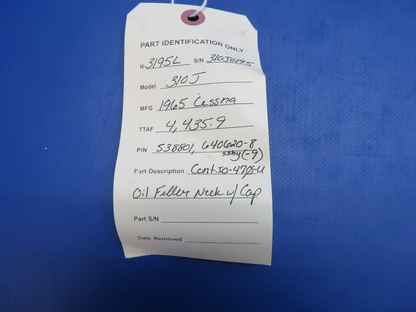 PART IDENTIFICATION ONLY
N 3195L S/N 310J0195
Model 310J
MFG 1965 Cessna
TTAF 4,435.9
P/N 538801, 640620-8
assy(-9)
Part Description Cont IO-470-U
Oil Filler Neck w/ Cap
Part S/N
Date Removed